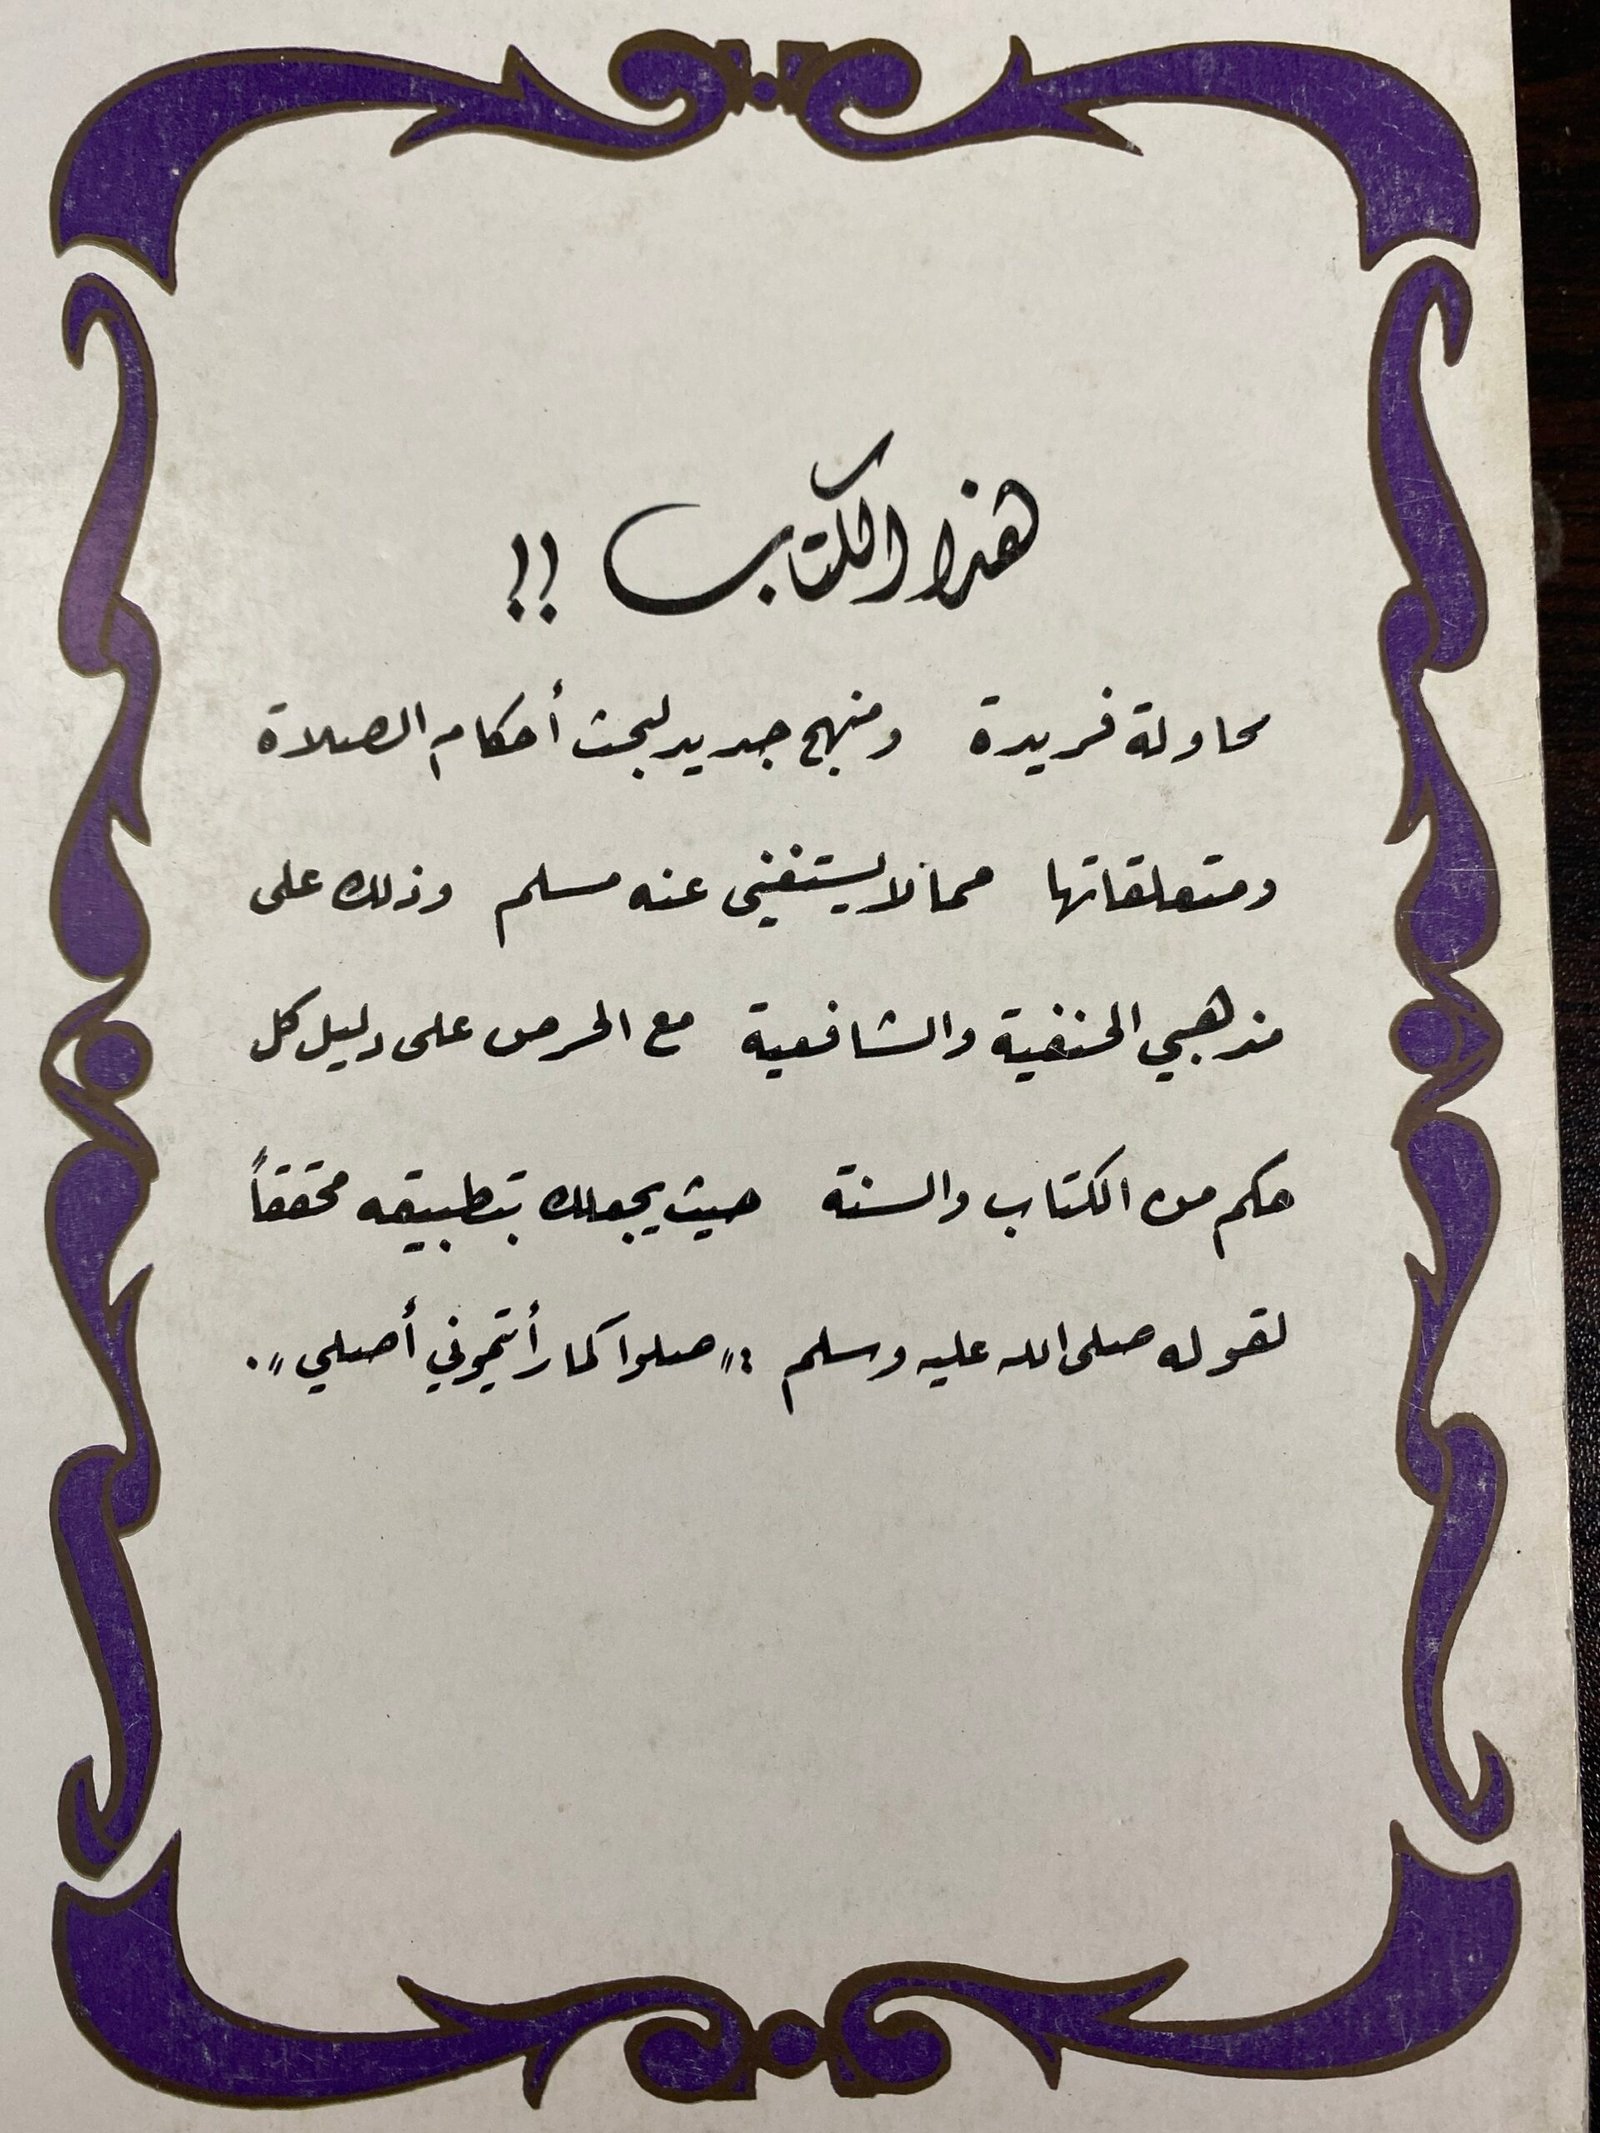 هذا الكتاب !!
محاولة فريدة ومنهج جديد لبحث أحكام الصلاة
ومتعلقاتها مما لا يستغني عنه مسلم وذلك على
مذهبي الحنفية والشافعية مع الحرص على دليل كل
حكم من الكتاب والسنة حيث يجعلك بتطبيقه محققاً
لقوله صلى الله عليه وسلم : "صلوا كما رأيتموني أصلي" .